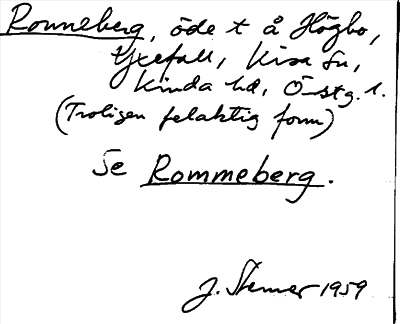 Ronneberg, öde t å Högbo,
Yxefall, Kisa sn,
Kinda hd, Östg. l.
(Troligen felaktig form)
Se Rommeberg.
J. Sterner 1959